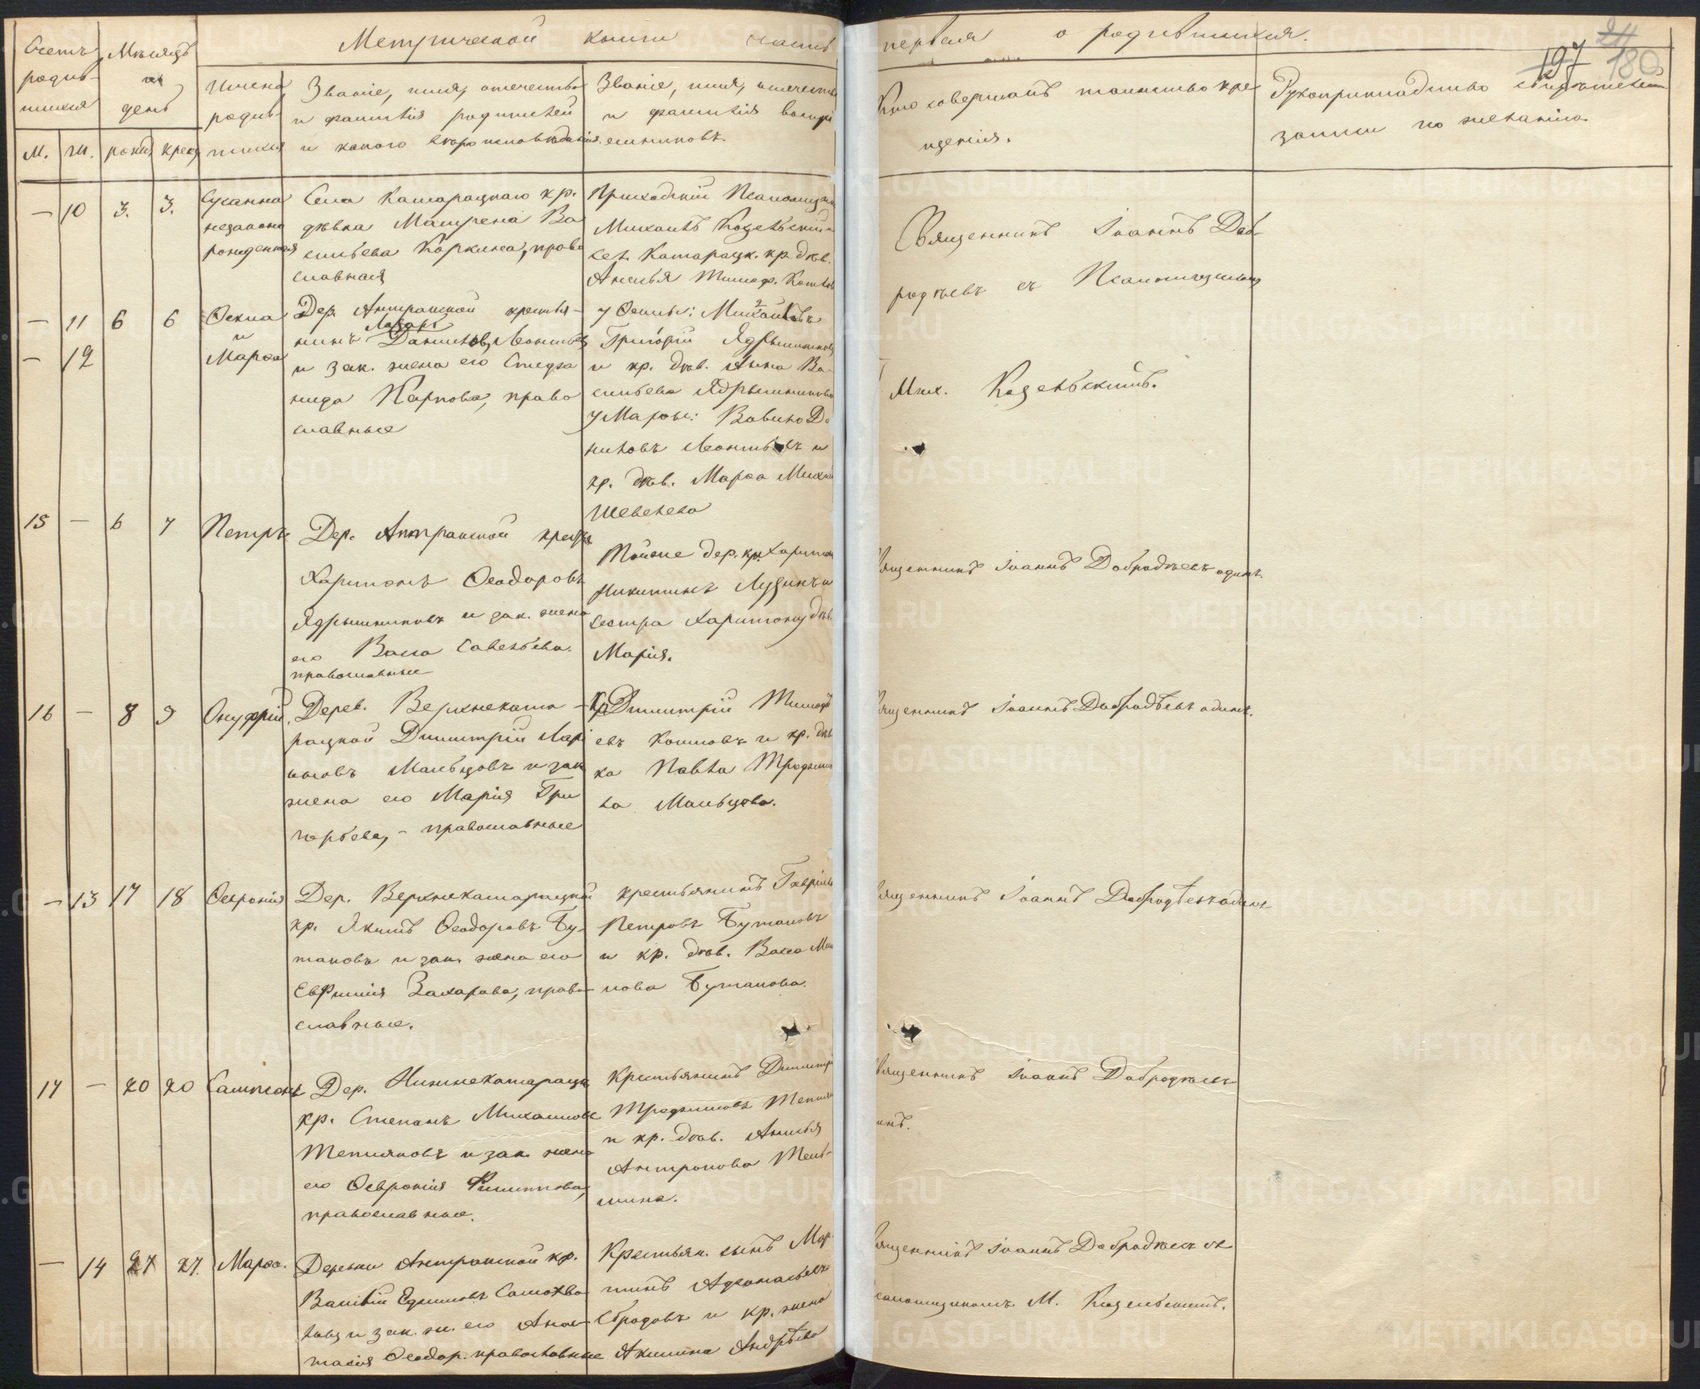 Метрической книги часть первая о родившихся.
197
180
Счетъ родив-
шихся
Мѣсяцъ и день
Имена родив-
шихся
Званіе, имя, отчество
и фамилія родителей
и какого вѣроисповѣданія.
Званіе, имя, отчество
и фамилія воспрі
емниковъ.
Кто совершалъ таинство кре
щенія.
Рукоприкладство свидѣтелей
записи по желанію.
М. Ж. рожд. крещ.
— 10 3. 3.
Сусанна
незаконно
рожденная
Села Катарацкаго кр.
дѣвка Матрена Ва
сильева Коркина, право
славная
Приходскій Псаломщикъ
Михаилъ Козельскій и
сел. Катарацк. кр. дѣв.
Анисья Тимоф.
Священникъ Іоаннъ Доб-
родѣевъ съ Псаломщикомъ
Мих. Козельскимъ.
— 11 6 6
— 12
Өекла
и
Марѳа
Дер. Антрацкой крестья-
нинъ Даниловъ Леонтьевъ
и зак. жена его Степа
нида Карпова, право
славные
у Өеклы: Михайловъ
Григорій Ядрышниковъ
и кр. дѣв. Анна Ва-
сильева Ядрышникова
у Марѳы: Вавило Да
ниловъ Леонтьевъ и
кр. дѣв. Марѳа Миха
Шевелева
15 — 6 7
Петръ
Дер. Антрацкой крест.
Харитонъ Ѳеодоровъ
Ядрышниковъ и зак. жена
его Васса Савельева.
православные
Тойже дер. кр. Харитонъ
Никитинъ Лузинъ и
сестра Харитону дѣв.
Марія.
Священникъ Іоаннъ Добродѣевъ одинъ.
16 — 8 9
Онуфрій.
Дерев. Верхнеката-
рацкой Димитрій Ларі
оновъ Мальцовъ и зак
жена его Марія Гри
горьева, - православные
Кр. Димитрій Тимоѳе
евъ Кошковъ и кр. дѣв
ка Павла Трофимо
ва Мальцова.
Священникъ Іоаннъ Добродѣевъ одинъ.
— 13 17 18
Ѳевронія
Дер. Верхнекатарацкой
кр. Якимъ Ѳеодоровъ Бу-
таковъ и зак. жена его
Евфимія Захарова, право-
славные.
крестьянинъ Гавріилъ
Петровъ Бутаковъ
и кр. дѣв. Васса Ми
нова Бутакова.
Священникъ Іоаннъ Добродѣевъ одинъ
17 — 20 20
Сампсонъ
Дер. Нижнекатарацк.
кр. Степанъ Михайловъ
Тепляковъ и зак. жена
его Ѳевронія Филиппова,
православные.
Крестьянинъ Димитр
Трофимовъ Тепляк
и кр. дѣв. Анисья
Антропова Теп-
Священникъ Іоаннъ Добродѣевъ
— 14 27 27.
Марѳа.
Деревни Антрацкой кр.
Василій Ефимовъ Самохва
ловъ и зак. ж. его Анас-
тасія Ѳеодор. православные
Крестьян. сынъ Мар
тинъ Аѳанасьевъ
Сбродовъ и кр. жена
Акилина Андрѣева
Священникъ Іоаннъ Добродѣевъ съ
псаломщикомъ М. Козельскимъ.
METRIKI.GASO-URAL.RU